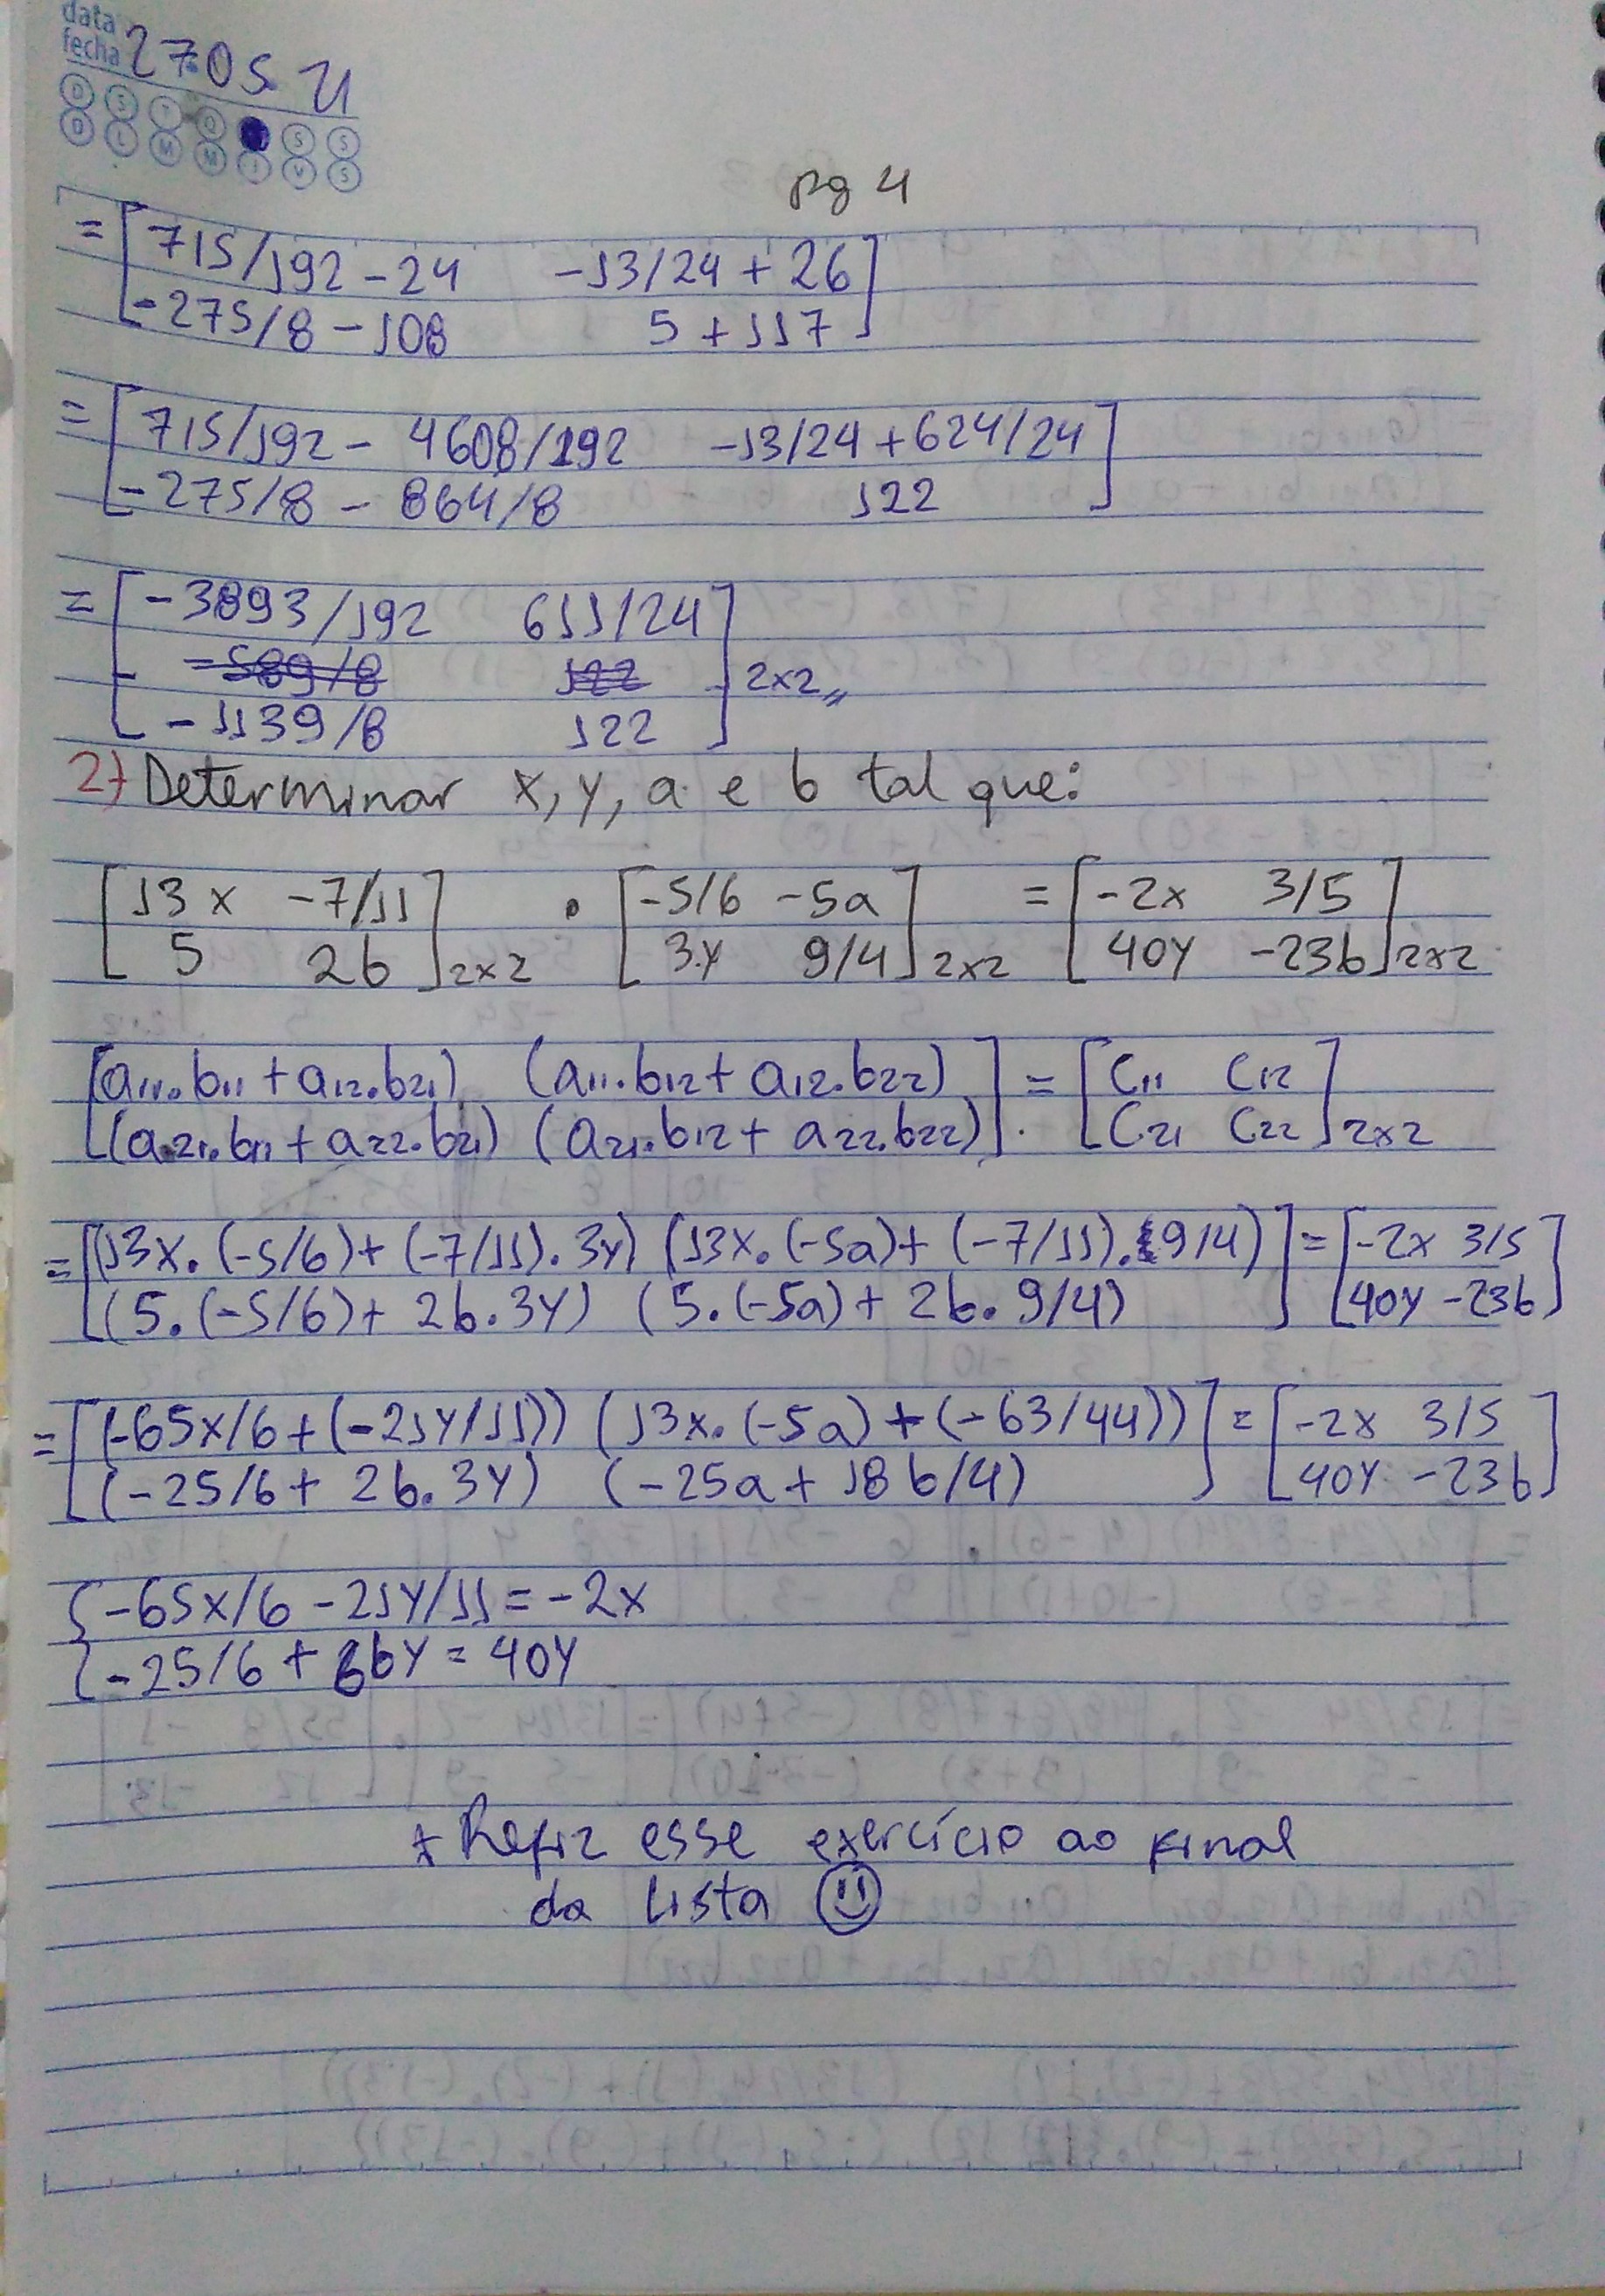 data
fecha 27.05.21
D S T Q S S
D L M M J V S
pg 4
= [ 715/192 - 24 -13/24 + 26 ]
[ -275/8 - 108 5 + 117 ]
= [ 715/192 - 4608/192 -13/24 + 624/24 ]
[ -275/8 - 864/8 122 ]
= [ -3893/192 611/24 ]
-589/8 122 2x2,,
[ -1139/8 122 ]
2) Determinar x, y, a e b tal que:
[ 13x -7/11 ] . [ -5/6 -5a ] = [ -2x 3/5 ]
[ 5 2b ]2x2 [ 3y 9/4 ]2x2 [ 40y -23b ]2x2
[ (a11.b11 + a12.b21) (a11.b12 + a12.b22) ] = [ C11 C12 ]
[ (a21.b11 + a22.b21) (a21.b12 + a22.b22) ]. [ C21 C22 ]2x2
= [ (13x.(-5/6) + (-7/11).3y) (13x.(-5a) + (-7/11).(9/4) ] = [ -2x 3/5 ]
[ (5.(-5/6) + 2b.3y) (5.(-5a) + 2b.9/4) ] [ 40y -23b ]
= [ (-65x/6 + (-21y/11)) (13x.(-5a) + (-63/44)) ] = [ -2x 3/5 ]
[ (-25/6 + 2b.3y) (-25a + 18b/4) ] [ 40y -23b ]
{ -65x/6 - 21y/11 = -2x
{ -25/6 + 6by = 40y
* Refiz esse exercício ao final
da lista